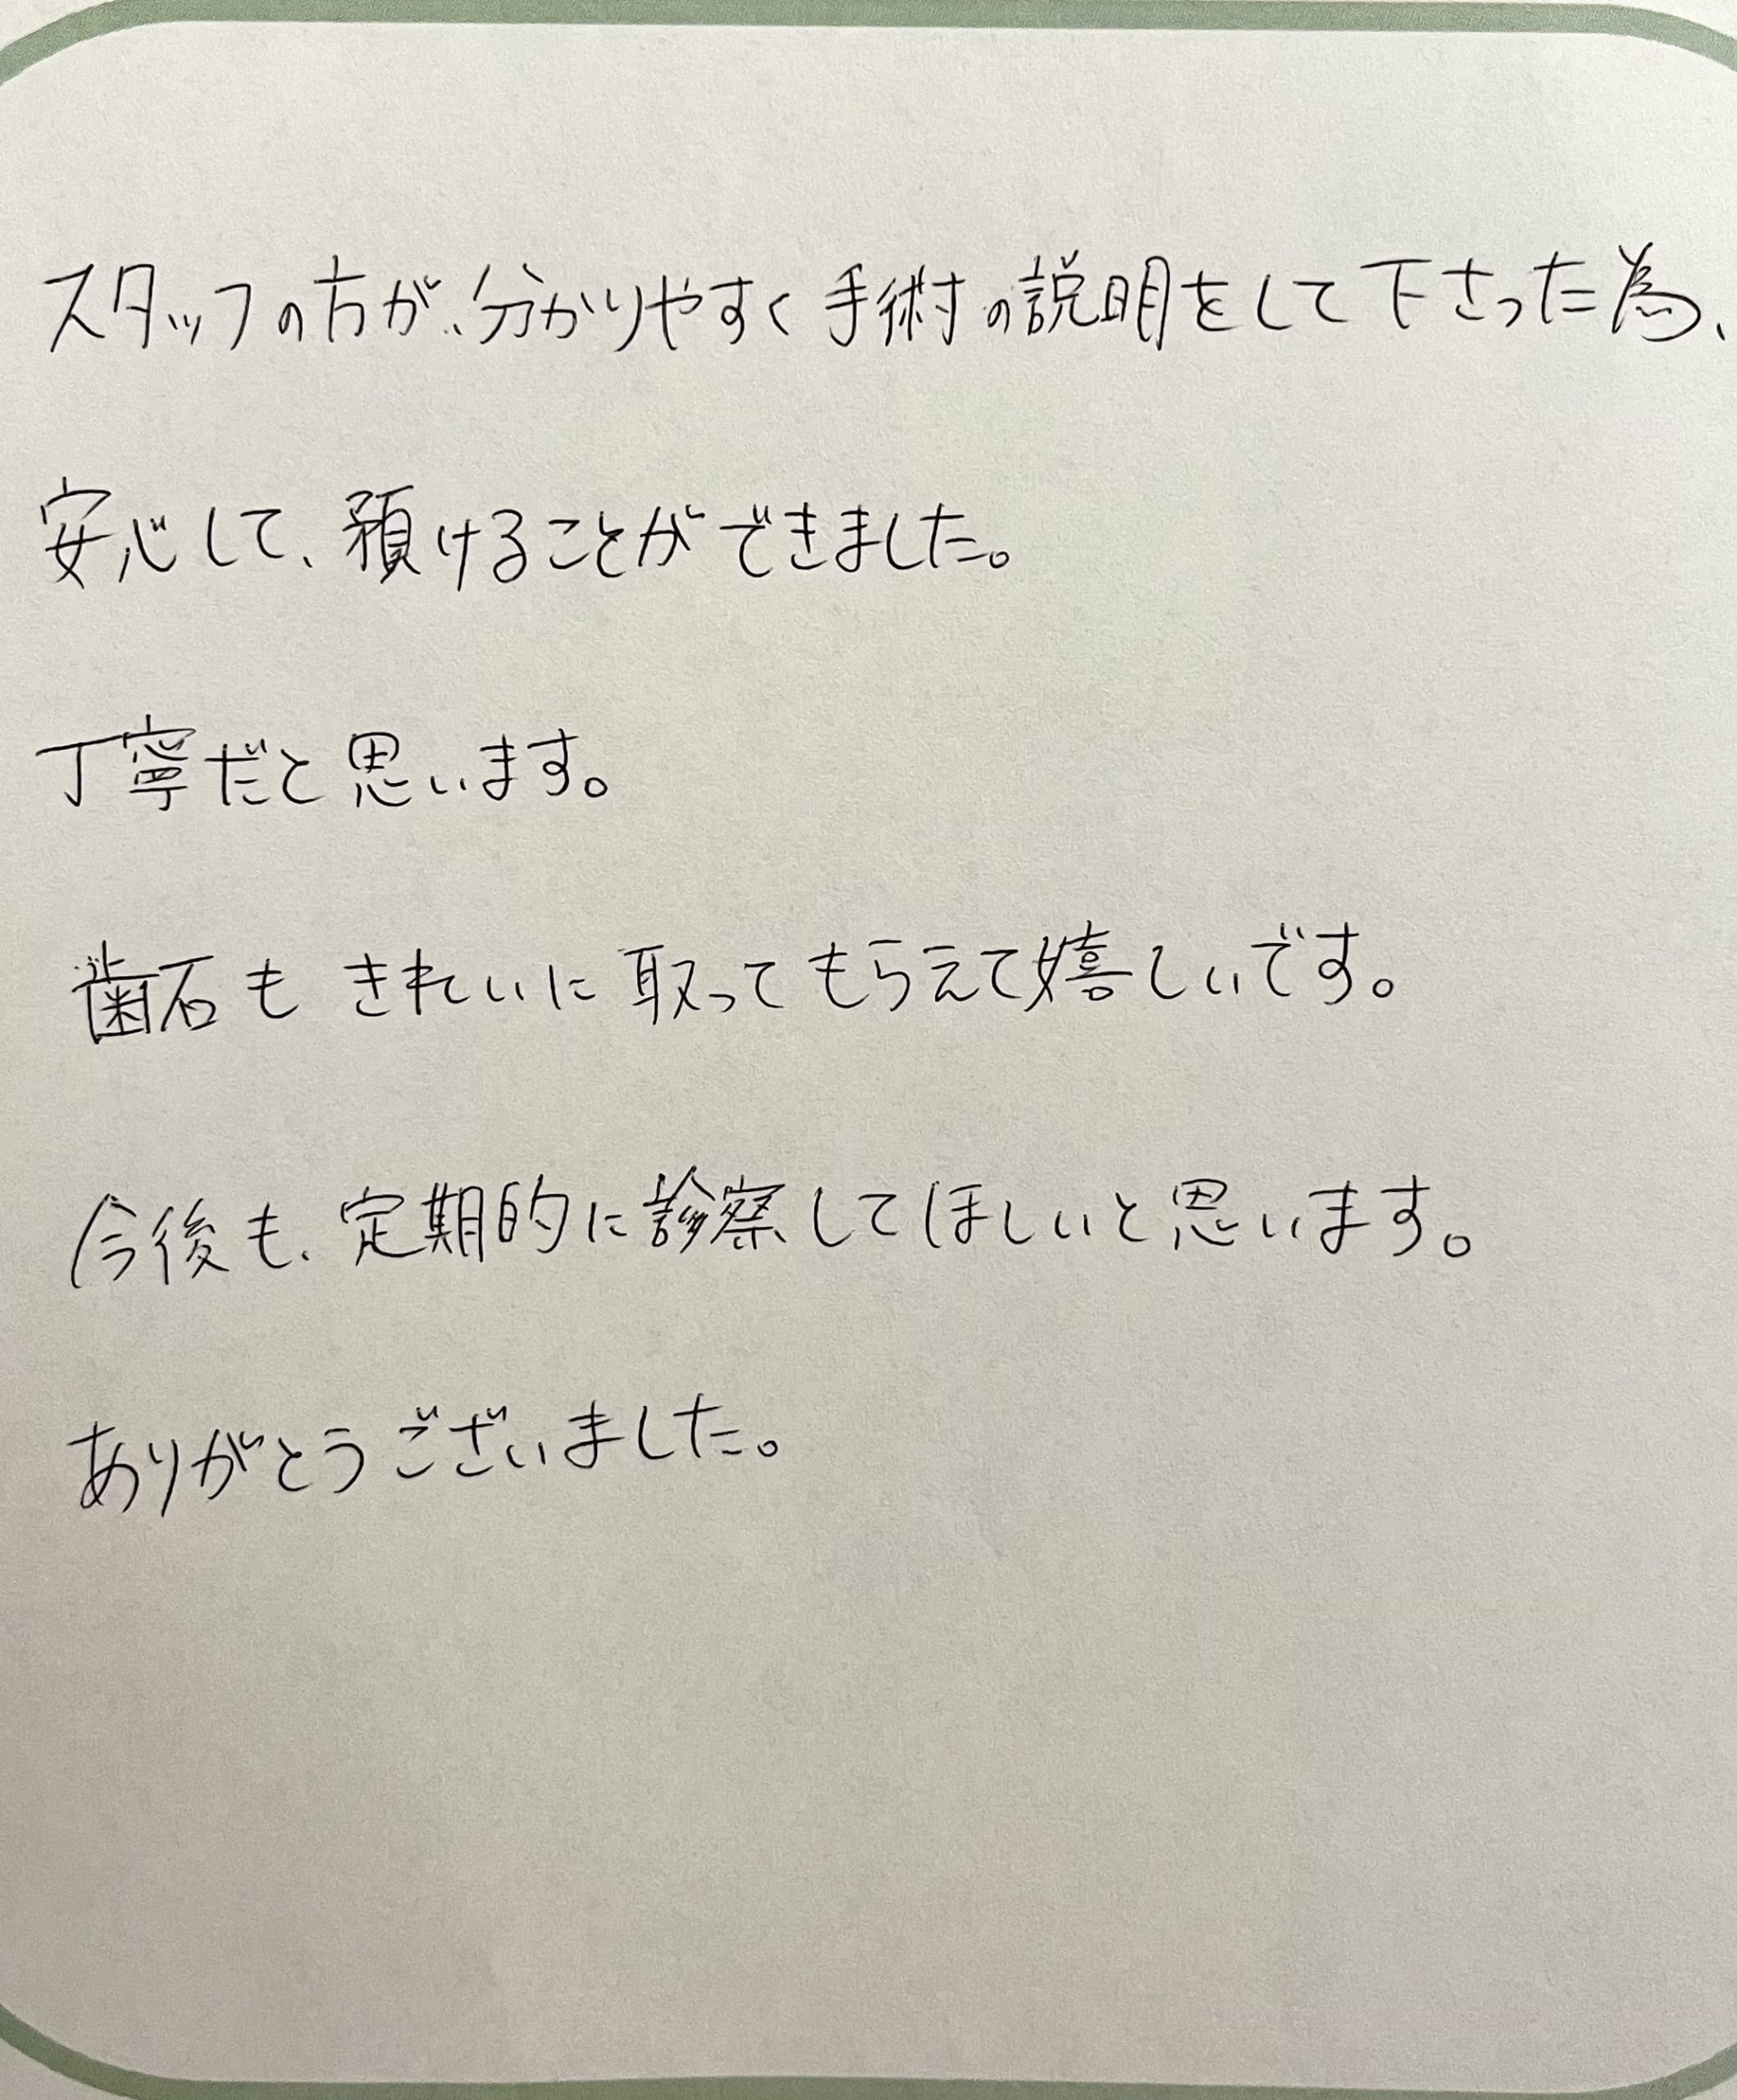 スタッフの方が、分かりやすく手術の説明をして下さった為、
安心して、預けることができました。
丁寧だと思います。
歯石もきれいに取ってもらえて嬉しいです。
今後も、定期的に診察してほしいと思います。
ありがとうございました。